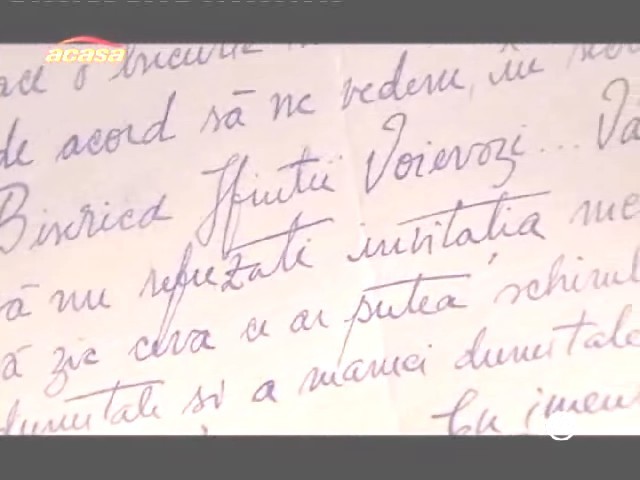 acasa
ace o bucurie
de acord să ne vedem, în
Biserica Sfintii Voievozi... Vă
să nu refuzati invitatia me
ă zic ceva ce ar putea schimb
dumitale si a mamei dumitale
Cu imens